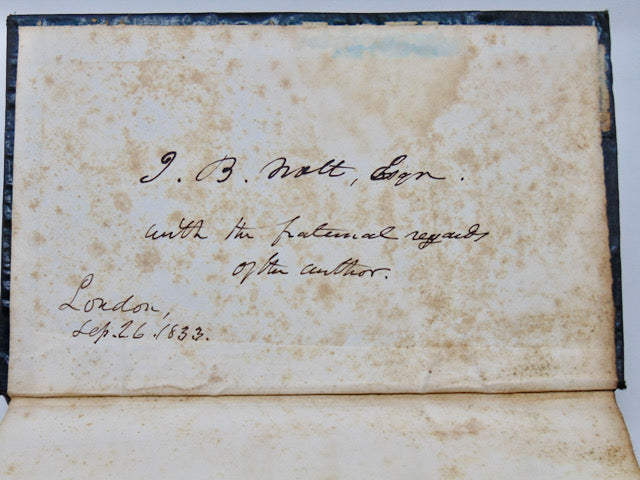 J. B. Nott, Esqr.
with the fraternal regards
of the author.
London,
Sep. 26. 1833.